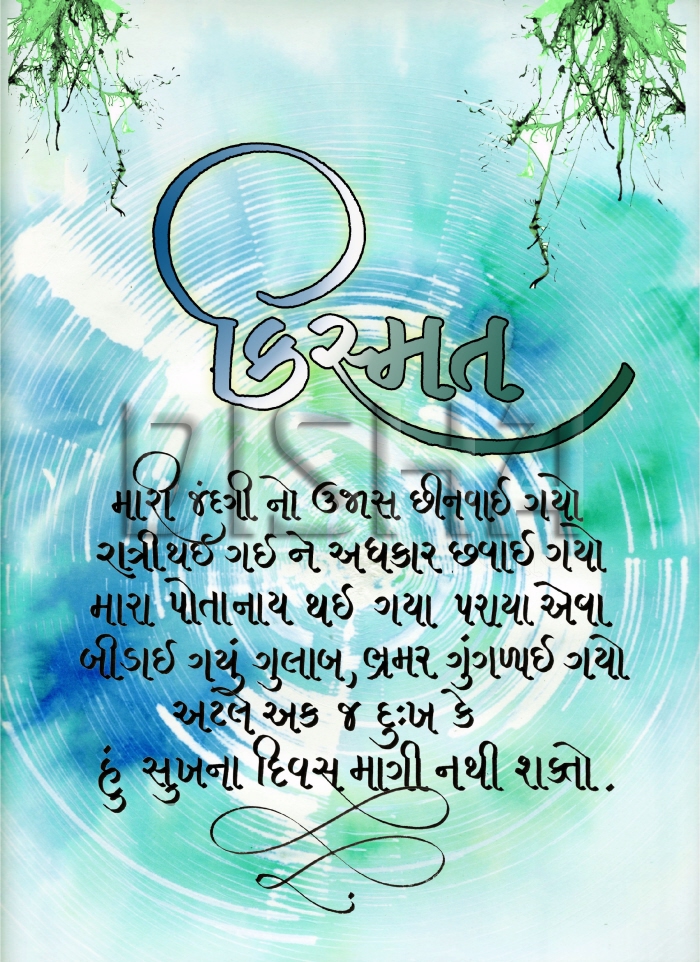 કિસ્મત
મારી જંદગી નો ઉજાસ છીનવાઈ ગયો
રાત્રી થઈ ગઈ ને અધકાર છવાઈ ગયો
મારા પોતાનાય થઈ ગયા પરાયા એવા
બીડાઈ ગયું ગુલાબ, ભ્રમર ગુંગળાઈ ગયો
અટલે અક જ દુઃખ કે
હું સુખના દિવસ માગી નથી શક્તો.